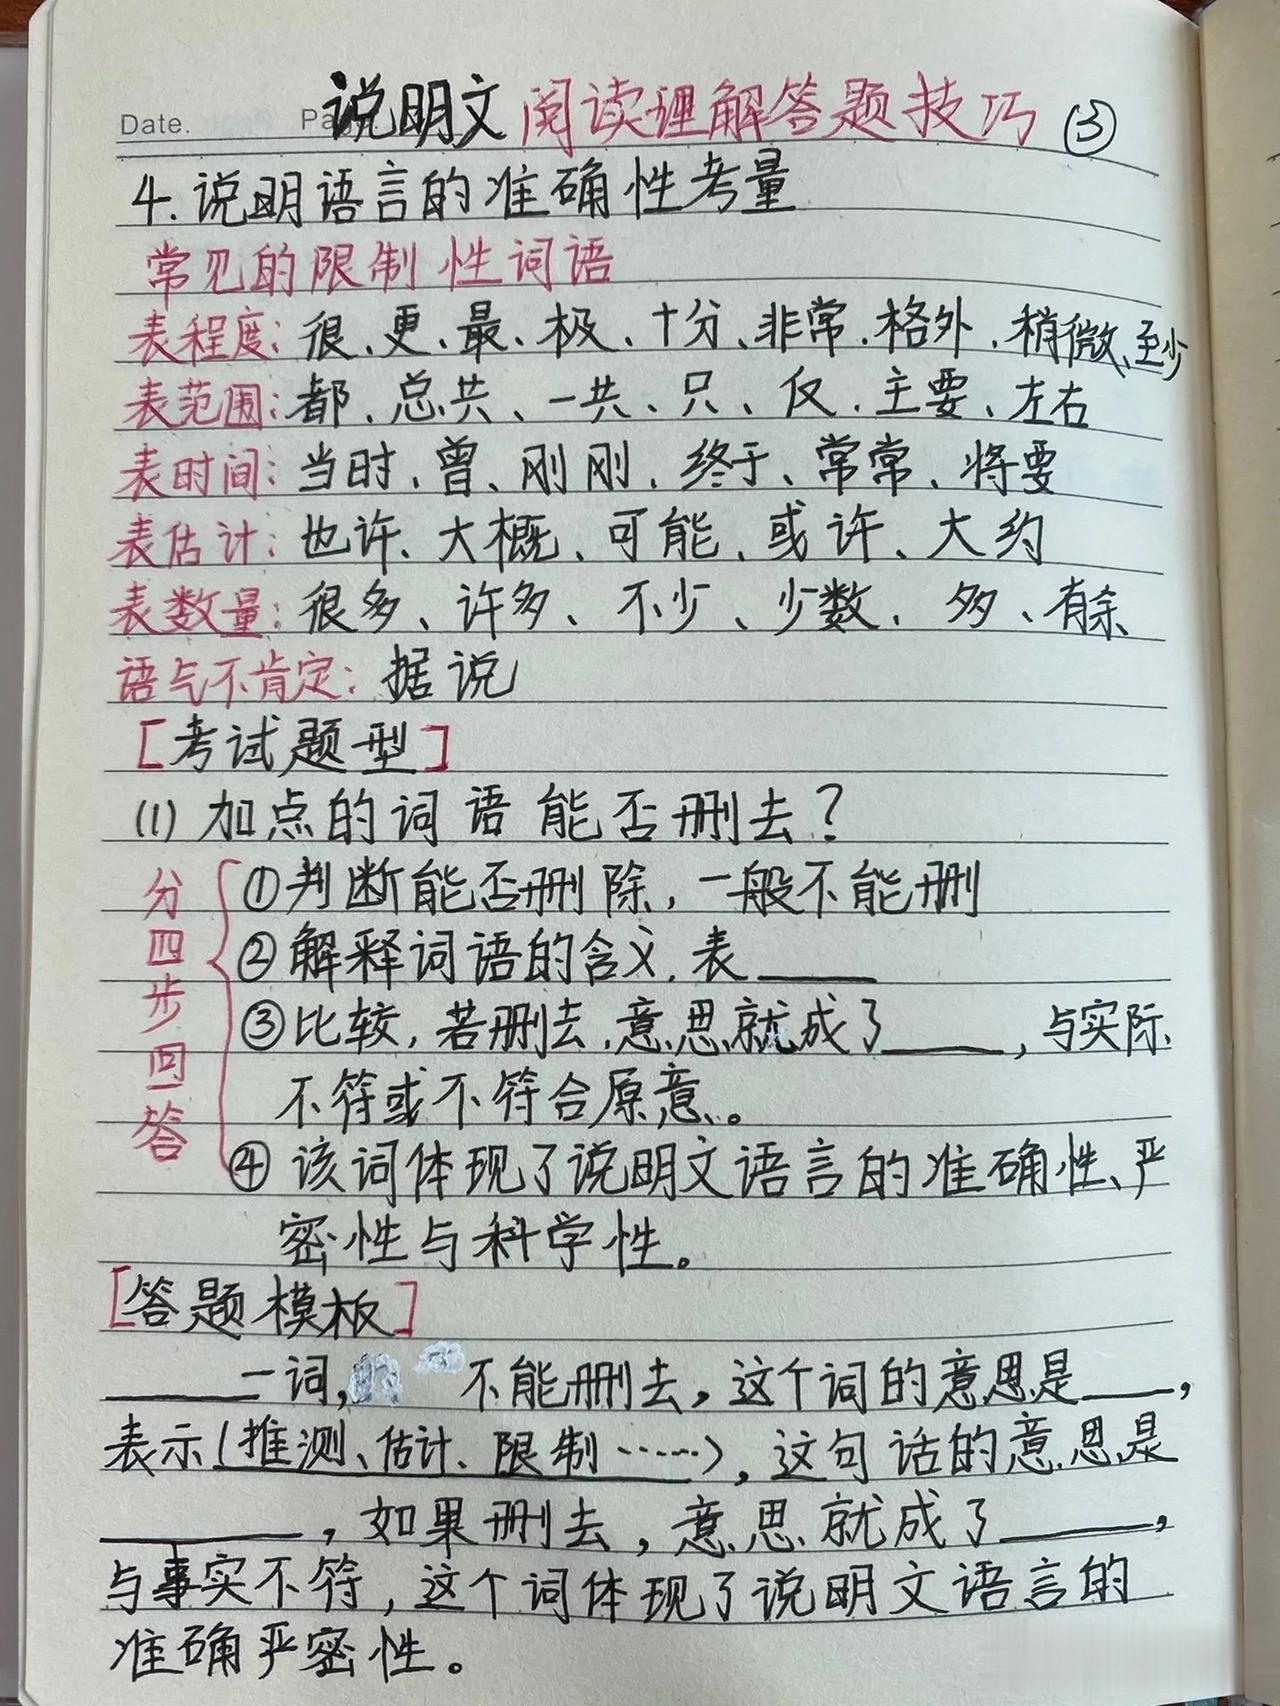 Date.
说明文阅读理解答题技巧③
4.说明语言的准确性考量
常见的限制性词语
表程度:很、更、最、极、十分、非常、格外、稍微、至少
表范围:都、总共、一共、只、仅、主要、左右
表时间:当时、曾、刚刚、终于、常常、将要
表估计:也许、大概、可能、或许、大约
表数量:很多、许多、不少、少数、多、有余
语气不肯定:据说
[考试题型]
(1)加点的词语能否删去?
分四步回答
①判断能否删除,一般不能删
②解释词语的含义,表____
③比较,若删去,意思就成了____,与实际
不符或不符合原意。
④该词体现了说明文语言的准确性、严
密性与科学性。
[答题模板]
____一词,不能删去,这个词的意思是____,
表示(推测、估计、限制……),这句话的意思是
____,如果删去,意思就成了____,
与事实不符,这个词体现了说明文语言的
准确严密性。